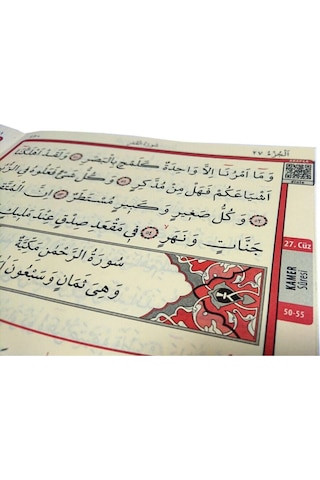 سورة القمر
الجزء ٢٧
وَمَا أَمْرُنَا إِلَّا وَاحِدَةٌ كَلَمْحٍ بِالْبَصَرِ ﴿٥٠﴾ وَلَقَدْ أَهْلَكْنَا
أَشْيَاعَكُمْ فَهَلْ مِنْ مُدَّكِرٍ ﴿٥١﴾ وَكُلُّ شَيْءٍ فَعَلُوهُ فِي
﴿٥٢﴾ وَكُلُّ صَغِيرٍ وَكَبِيرٍ مُسْتَطَرٌ ﴿٥٣﴾ إِنَّ
جَنَّاتٍ وَنَهَرٍ ﴿٥٤﴾ فِي مَقْعَدِ صِدْقٍ عِنْدَ
سُورَةُ الرَّحْمٰنِ مَكِّيَّةٌ
وَهِيَ ثَمَانٍ وَسَبْعُونَ
27. Cüz
KAMER
Sûresi
50-55